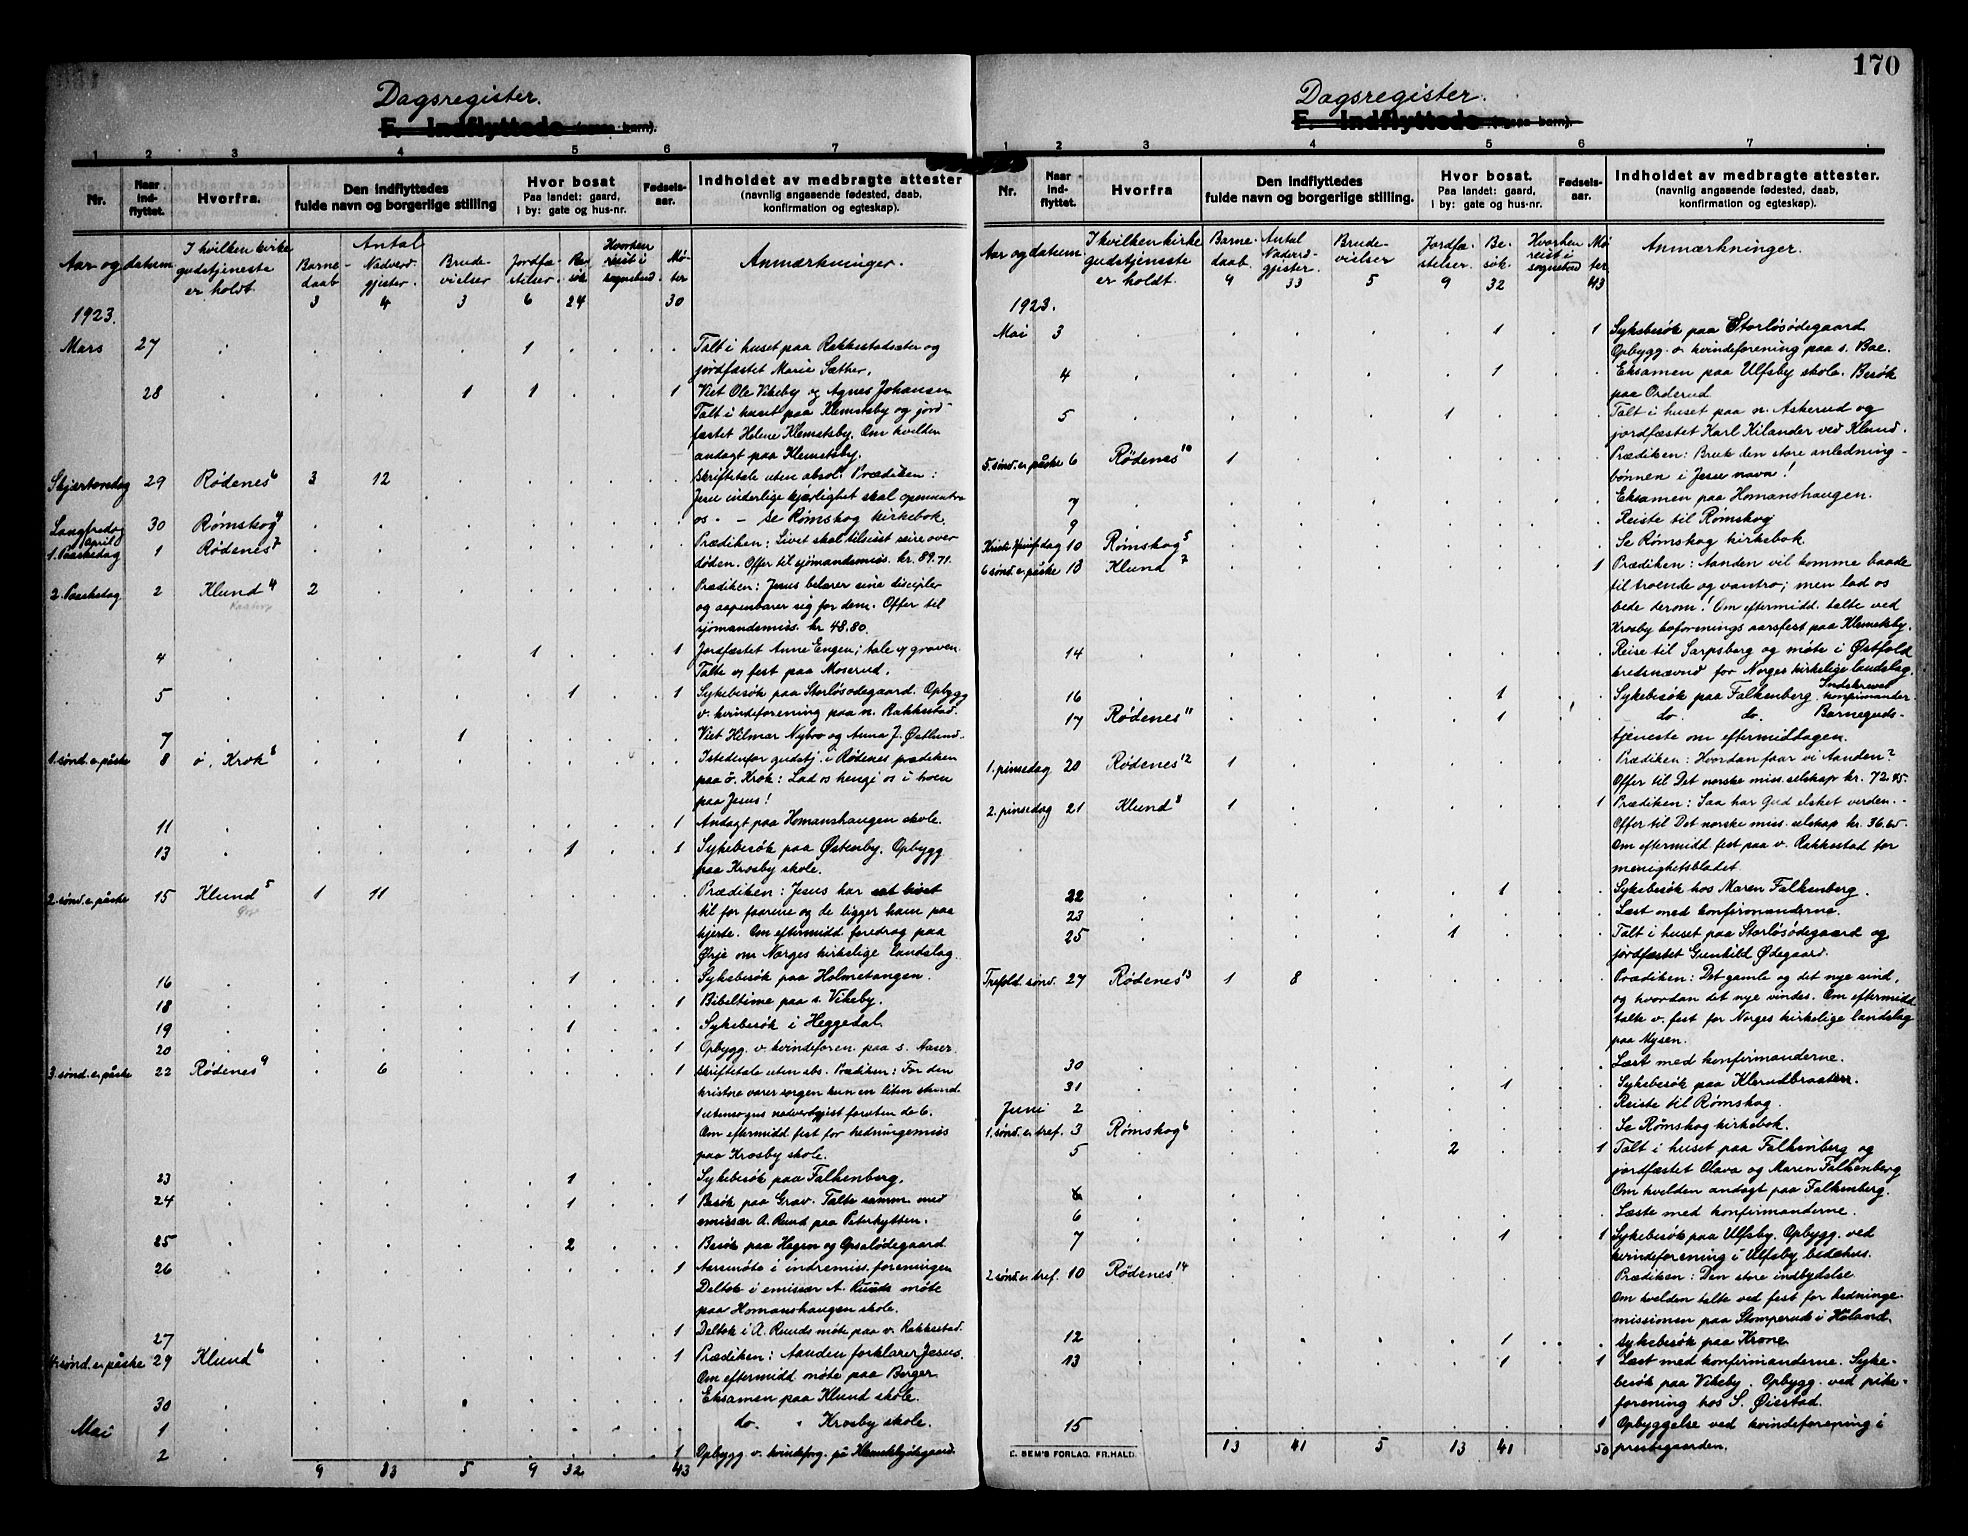 Dagsregister.
F. Indflyttede (ogsaa barn).
1 2 3 4 5 6 7
Nr.
Naar ind-flyttet.
Hvorfra.
Den indflyttedes
fulde navn og borgerlige stilling
Hvor bosat
Paa landet: gaard,
i by: gate og hus-nr.
Fødsels-aar.
Indholdet av medbragte attester
(navnlig angaaende fødested, daab,
konfirmation og egteskap).
Aar og datum
I hvilken kirke
gudstjeneste
er holdt.
Antal
Barne-daab
Nadverd-gjester.
Brude-vielser
Jordfæ-stelser.
Be-søk
Hvorhen reist i sognebud
Mø-ter
Anmærkninger.
3 4 3 6 24 30
1923.
Mars 27 . . . . 1 . . . Talt i huset paa Rakkestadsæter og
jordfæstet Marie Sæther.
28 . . . 1 1 . . 1 Viet Ole Vikeby og Agnes Johansen
Talt i huset paa Klemetsby og jord-
fæstet Helene Klemetsby. Om kvelden
andagt paa Klemetsby.
Skjærtorsdag 29 Rødenes 6 3 12 Skriftetale uten absol. Prædiken:
Jesu inderlige kjærlighet skal opmuntre
os. -
Langfredag 30 Rømskog 4 - Se Rømskog kirkebok.
April
1. Paaskedag 1 Rødenes 7 Prædiken: Livet skal tilsist seire over
døden. Offer til sjømandsmiss. kr. 89.71.
2. Paaskedag 2 Klund 4 2 Prædiken: Jesus belærer sine discipler
og aapenbarer sig for dem. Offer til
sjømandsmiss. kr 48.80.
4 . . . . 1 . . 1 Jordfæstet Anne Engen; tale v. graven.
Talte v. fest paa Moserud.
5 . . . . . 1 . 1 Sykebesøk paa Storløsødegaard. Opbygg
v. kvindeforening paa n. Rakkestad.
7 . . . 1 . . . . Viet Hilmar Nybro og Anna J. Østlund.
1. sønd. e. påske 8 ø. Krok 8 Istedenfor gudstj. i Rødenes prædiken
paa ø. Krok: Lad os henge os i hvem
paa Jesus!
11 . . . . . . . 1 Andagt paa Homanshaugen skole.
13 . . . . . 1 . 1 Sykebesøk paa Østenby. Opbygg
paa Krosby skole.
2. sønd. e. påske 15 Klund 5 1 11 Prædiken: Jesus har sat livet
til for faarene og de ligger ham paa
hjerte. Om eftermidd foredrag paa
Ørje om Norges kirkelige landslag.
16 . . . . . 1 . . Sykebesøk paa Holmetangen.
18 . . . . . . . 1 Bibeltime paa s. Vikeby.
19 . . . . . 1 . . Sykebesøk i Heggedal.
20 . . . . . . . 1 Opbygg. v. kvindeforen. paa s. Aaser.
3. sønd. e. påske 22 Rødenes 9 . 6 . . . . 1 Skriftetale uten abs. Prædiken: For den
kristne varer sorgen kun en liten stund
1 utensogns nadverdgjest foruten de 6.
Om eftermidd fest for hedningemiss
paa Krosby skole.
23 . . . . . 1 . . Sykebesøk paa Falkenberg.
24 . . . . . 1 . 1 Besøk paa Grav. Talte samm. med
emissær A. Ruud paa Peterhytten.
25 . . . . . 2 . . Besøk paa Hagen og Opsalødegaard
26 . . . . . . . 1 Aarsmøte i indremiss. foreningen
Deltok i emissær A. Ruuds møte
paa Homanshaugen skole.
27 . . . . . . . 1 Deltok i A. Ruuds møte paa v. Rakkestad.
4. sønd. e. påske 29 Klund 6 . . . . . . 1 Prædiken: Aanden forklarer Jesus.
Om eftermidd møte paa Berger
30 Eksamen paa Klund skole.
Mai 1 do. " Krosby skole.
2 . . . . . . . 1 Opbygg v. kvindeforg. på Klemetsbyødegaard.
9 33 5 9 32 43
170
Dagsregister.
F. Indflyttede (ogsaa barn).
1 2 3 4 5 6 7
Nr.
Naar ind-flyttet.
Hvorfra
Den indflyttedes
fulde navn og borgerlige stilling.
Hvor bosat.
Paa landet: gaard,
i by: gate og hus-nr.
Fødsels-aar.
Indholdet av medbragte attester.
(navnlig angaaende fødested, daab,
konfirmation og egteskap).
Aar og datum
I hvilken kirke
gudstjeneste
er holdt.
Barne-daab.
Antal Nadverd-gjester.
Brude-vielser
Jordfæ-stelser.
Be-søk.
Hvorhen reist i sognebud
Mø-ter.
Anmærkninger.
9 33 5 9 32 43
1923.
Mai 3 . . . . . 1 . 1 Sykebesøk paa Storløsødegaard
Opbygg. v. kvindeforening paa s. Boe.
4 . . . . . 1 . . Eksamen paa Ulfsby skole. Besøk
paa Orderud
5 . . . . 1 . . . Talt i huset paa n. Askerud og
jordfæstet Karl Kilander ved Klund.
5. sønd. e. påske 6 Rødenes 10 1 Prædiken: Bruk den store anledning-
bønnen i Jesu navn!
7 Eksamen paa Homanshaugen.
9 Reiste til Rømskog
Kristi Himf. dag 10 Rømskog 5 Se Rømskog kirkebok.
6 sønd. e. påske 13 Klund 7 . . . . . . 1 Prædiken: Aanden vil komme baade
til troende og vantro; men lad os
bede derom! Om eftermidd. talte ved
Krosby boforenings aarsfest paa Klemetsby.
14 Reise til Sarpsborg og møte i Østfold
kredsnævnd for Norges kirkelige landslag.
16 . . . . . 1 . . Sykebesøk paa Falkenberg. Indskrevet konfirmander
17 Rødenes 11 . . . . 1 . . do. do. Barneguds-
tjeneste om eftermiddagen.
1. pinsedag 20 Rødenes 12 1 Prædiken: Hvordan faar vi Aanden?
Offer til Det norske miss. selskap kr. 72.45.
2. pinsedag 21 Klund 8 1 . . . . . 1 Prædiken: Saa har Gud elsket verden. -
Offer til Det norske miss. selskap kr. 36.65.
Om eftermidd fest paa v. Rakkestad for
menighetsbladet
22 . . . . . 1 . . Sykebesøk hos Maren Falkenberg.
23 Læst med konfirmanderne.
25 . . . . 1 . . . Talt i huset paa Storløsødegaard og
jordfæstet Grenhild Ødegaard.
Trefold. sønd. 27 Rødenes 13 1 8 Prædiken: Det gamle og det nye sind,
og hvordan det nye vindes. Om eftermidd
talte v. fest for Norges kirkelige landslag
paa Mysen.
30 Læst med konfirmanderne.
31 . . . . . 1 . . Sykebesøk paa Klerudbraaten.
Juni 2 Reiste til Rømskog.
1. sønd. e. tref. 3 Rømskog 6 Se Rømskog kirkebok.
5 . . . . 2 . . 1 Talt i huset paa Falkenberg og
jordfæstet Olava og Maren Falkenberg
Om kvelden andagt paa Falkenberg.
6 Læste med konfirmanderne.
7 . . . . . 1 . 1 Sykebesøk paa Ulfsby. Opbygg. ved
kvindeforening i Ulfsby bedehus.
2 sønd. e. tref. 10 Rødenes 14 Prædiken: Den store indbydelse
Om kvelden talte ved fest for hedninge-
missionen paa Stomperud i Høland.
12 . . . . . 1 . . Sykebesøk paa Krone
13 . . . . . 1 . 1 Læst med konfirmanderne. Syke-
besøk paa Vikeby. Opbygg. ved pike-
forening hos S. Øiestad.
15 . . . . . . . 1 Opbyggelse ved kvindeforening i
prestegaarden.
13 41 5 13 41 50
E. SEM'S FORLAG. FR.HALD.